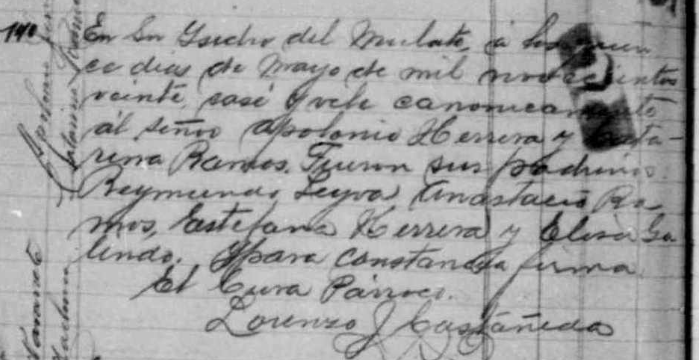 140 En Sn Ysidro del Mulato, á los quin
ce dias de Mayo de mil novecientos
veinte, casé y velé canonicamente
al señor Apolonio Herrera y Cata-
rina Ramos. Fueron sus padrinos:
Reymundo Leyva, Anastacio Ra-
mos, Estefana Herrera y Elisa Ga
lindo. Y para constancia firma
El Cura Párroco.
Lorenzo J Castañeda